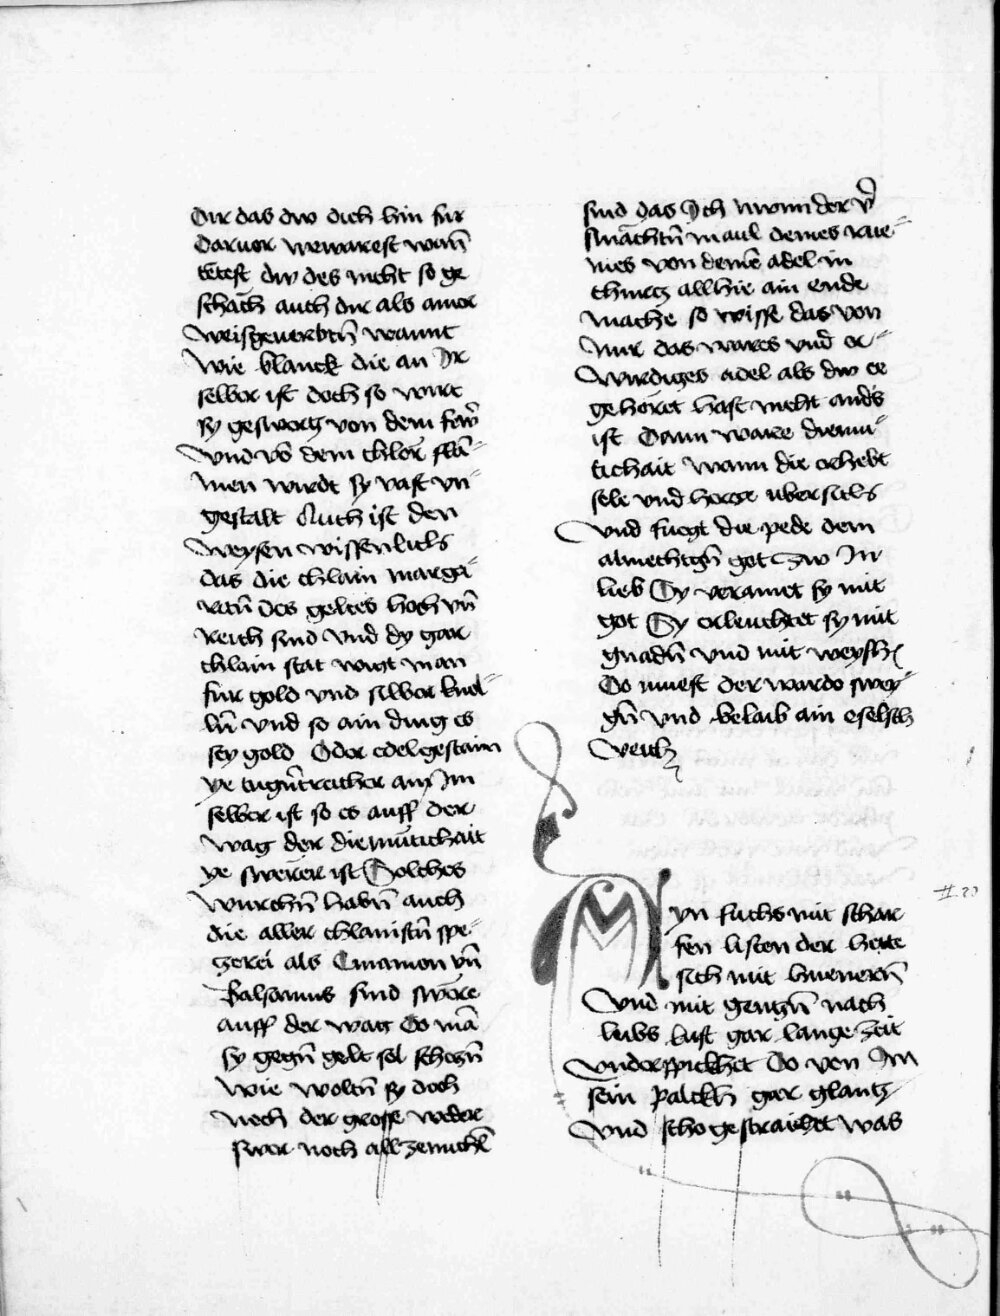 Dir das dw dich hin fur
Daruor wewarest wañ
tëtest dw des nicht so ge
schäch auch dir als ainer
weisgeuerbtñ wannt
wie blanck die an Ir
selber ist doch so wirt
sy geswertz von dem fewr̃
Vnd võ dem chlor̃ flã=
men wirdt sy vast vn=
gestalt Auch ist den
weysen wissenlich
das die chlain marga=
ritñ des geltes hoch vñ
Reich sind Vnd dy gar
chlain stat wigt man
fur gold vnd silber
Vnd so ain ding es
sey gold Oder edelgestain
ye tugñtreicher an Im
selber ist so es auff der
wag der diemũtichait
ye swerer ist Solches
wurchñ habñ auch
die aller chlainistñ spe=
zerei als Cinamon vñ
Balsamus sind swëre
auff der wag Do mã
sy gegñ gelt sol scheczñ
wie woltñ sy doch
noch der grosse weder
swer noch
sind das Ich nwnn der
maul deines
von deinẽ adel in
churcz allhie ain ende
mache so wisse das von
mir das wares vnd er=
wirdiges adel als dw ee
gehöret hast nicht anders
ist Dann ware diemü=
tichait wann die erhebt
sele vnd hercze vbersich
Vnd fuegt die pede dem
almechtigñ got Zw Im
lieb Sy veraint sy mit
got Sy erleuchtet sy mit
gnadñ vnd mit weyshe
Do muest der wardo swey=
gñ vnd belaib ain eselisch
Veich
Ayn fuchs mit schar
fen listen der hette
sich mit huenerñ
Vnd mit gensñ nach
leibs lust gar lange zeit
Vnderspickhet Do von Im
sein palckh gar glantz
Vnd scho gestraichet was
II. 20